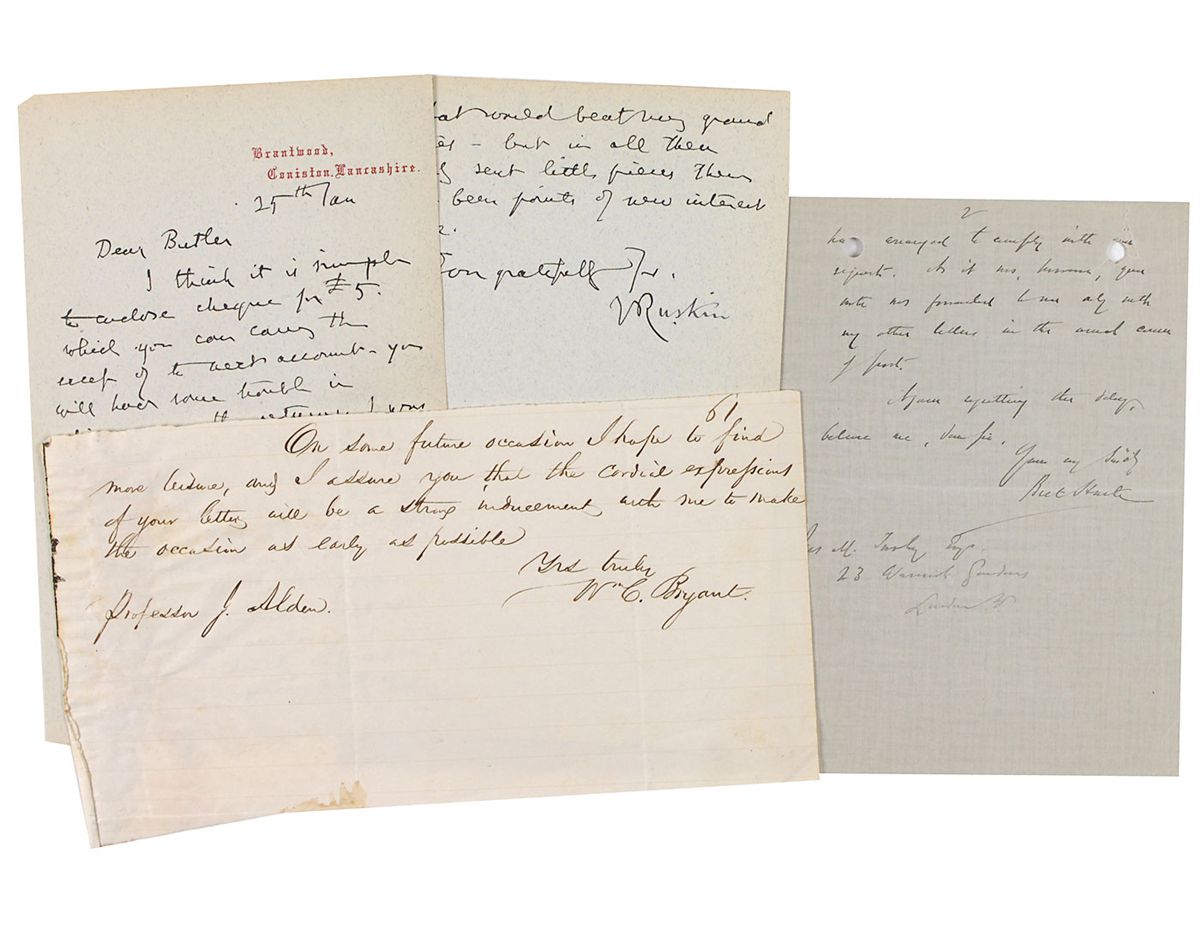 Brantwood,
Coniston, Lancashire.
25th Jan
Dear Butler
I think it is simple
to enclose cheque for £5.
which you can carry the
rect of to next account - you
will have some trouble in
the returns I was
at would beat very grand
- but in all then
sent little pieces there
been points of new interest
Ever gratefully Yrs.
J Ruskin
2
has arranged to comply with your
request. As it was, however, your
note was forwarded to me only with
my other letters in the usual course
of post.
Again regretting the delay,
believe me, Dear Sir,
Yours very truly
Bret Harte
M. Esq.
23 Warwick Gardens
London W
61
On some future occasion I hope to find
more leisure, and I assure you that the cordial expressions
of your letter will be a strong inducement with me to make
the occasion as early as possible
Yrs truly
Wm C. Bryant.
Professor J. Alden.